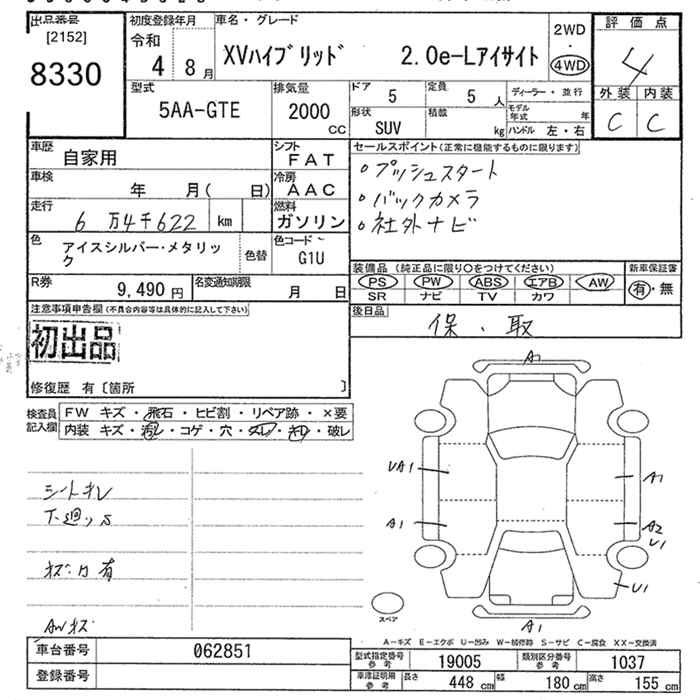 出品番号
[2152]
8330
初度登録年月
令和
4 8月
車名・グレード
XVハイブリッド 2.0e-Lアイサイト
2WD
・
4WD
評価点
4
外装 内装
C C
型式
5AA-GTE
排気量
2000
CC
ドア
5
定員
5 人
形状
SUV
積載
kg
ディーラー・並行
モデル年式 年
ハンドル 左・右
車歴
自家用
シフト
FAT
車検
年 月( 日)
冷房
AAC
走行
6 万4千622 km
燃料
ガソリン
色
アイスシルバー・メタリック
色替
色コード
G1U
R券
9,490 円
名変通知期限
月 日
セールスポイント(正常に機能するものに限ります)
プッシュスタート
バックカメラ
社外ナビ
装備品 (純正品に限り○をつけてください)
新車保証書
PS PW ABS エアB AW
SR ナビ TV カワ
有・無
後日品
保、取
注意事項申告欄(不具合内容等は具体的に記入して下さい)
初出品
修復歴 有〔箇所 〕
検査員記入欄
FW キズ・飛石・ヒビ割・リペア跡・×要
内装 キズ・汚レ・コゲ・穴・スレ・キレ・破レ
シートキレ
下廻りS
キズ凹有
AWキズ
A1
UA1
A1
A1
A2
U1
U1
A1
スペア
A-キズ E-エクボ U-凹み W-補修跡 S-サビ C-腐食 XX-交換済
車台番号
062851
登録番号
型式指定番号
参考
19005
類別区分番号
参考
1037
車庫証明用
参考
長さ
448 cm
幅
180 cm
高さ
155 cm